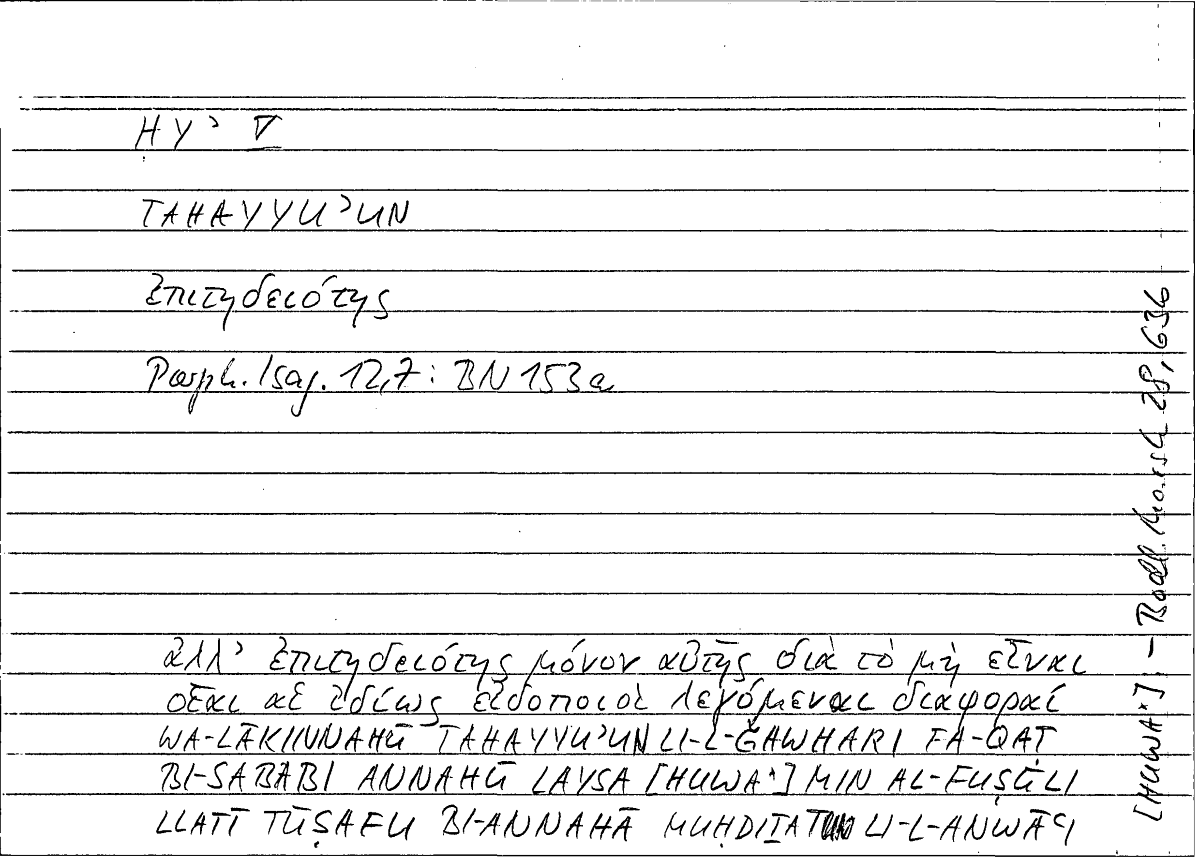 HYʾ V
TAHAYYUʾUN
ἐπιτηδειότης
Porph. Isag. 12,7: BN 153a
ἀλλ’ ἐπιτηδειότης μόνον αὐτῆς διὰ τὸ μὴ εἶναι
οἷαι αἱ ἰδίως εἰδοποιοὶ λεγόμεναι διαφοραί
WA-LĀKINNAHŪ TAHAYYUʾUN LI-L-ǦAWHARI FA-QAṬ
BI-SABABI ANNAHŪ LAYSA [HUWA*] MIN AL-FUṢŪLI
LLATĪ TŪṢAFU BI-ANNAHĀ MUḤDIṮATUN LI-L-ANWĀʿI
[HUWA*]: – Bodl. Marsh 28, 636